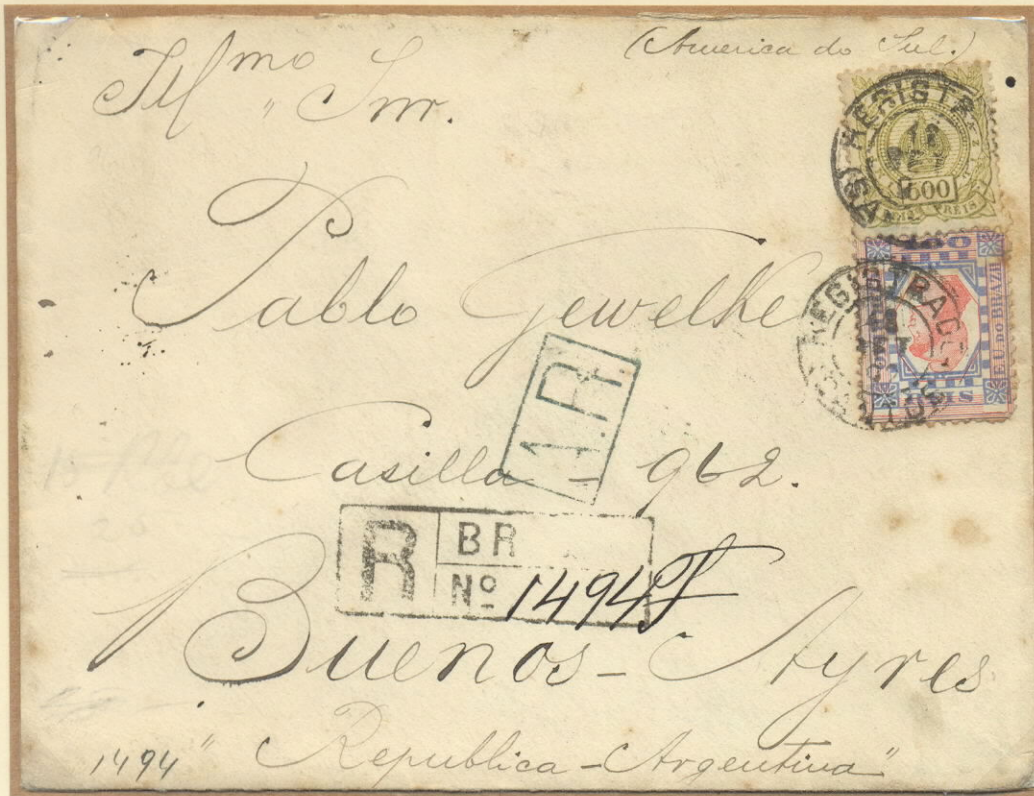 (America do Sul.)
Ill^mo " Snr.
Pablo Gewelke
Casilla - 962.
A.R.
R BR
Nº 1494
Buenos-Ayres
1494 " Republica-Argentina"
500
REIS
E.U. DO BRAZIL
REIS